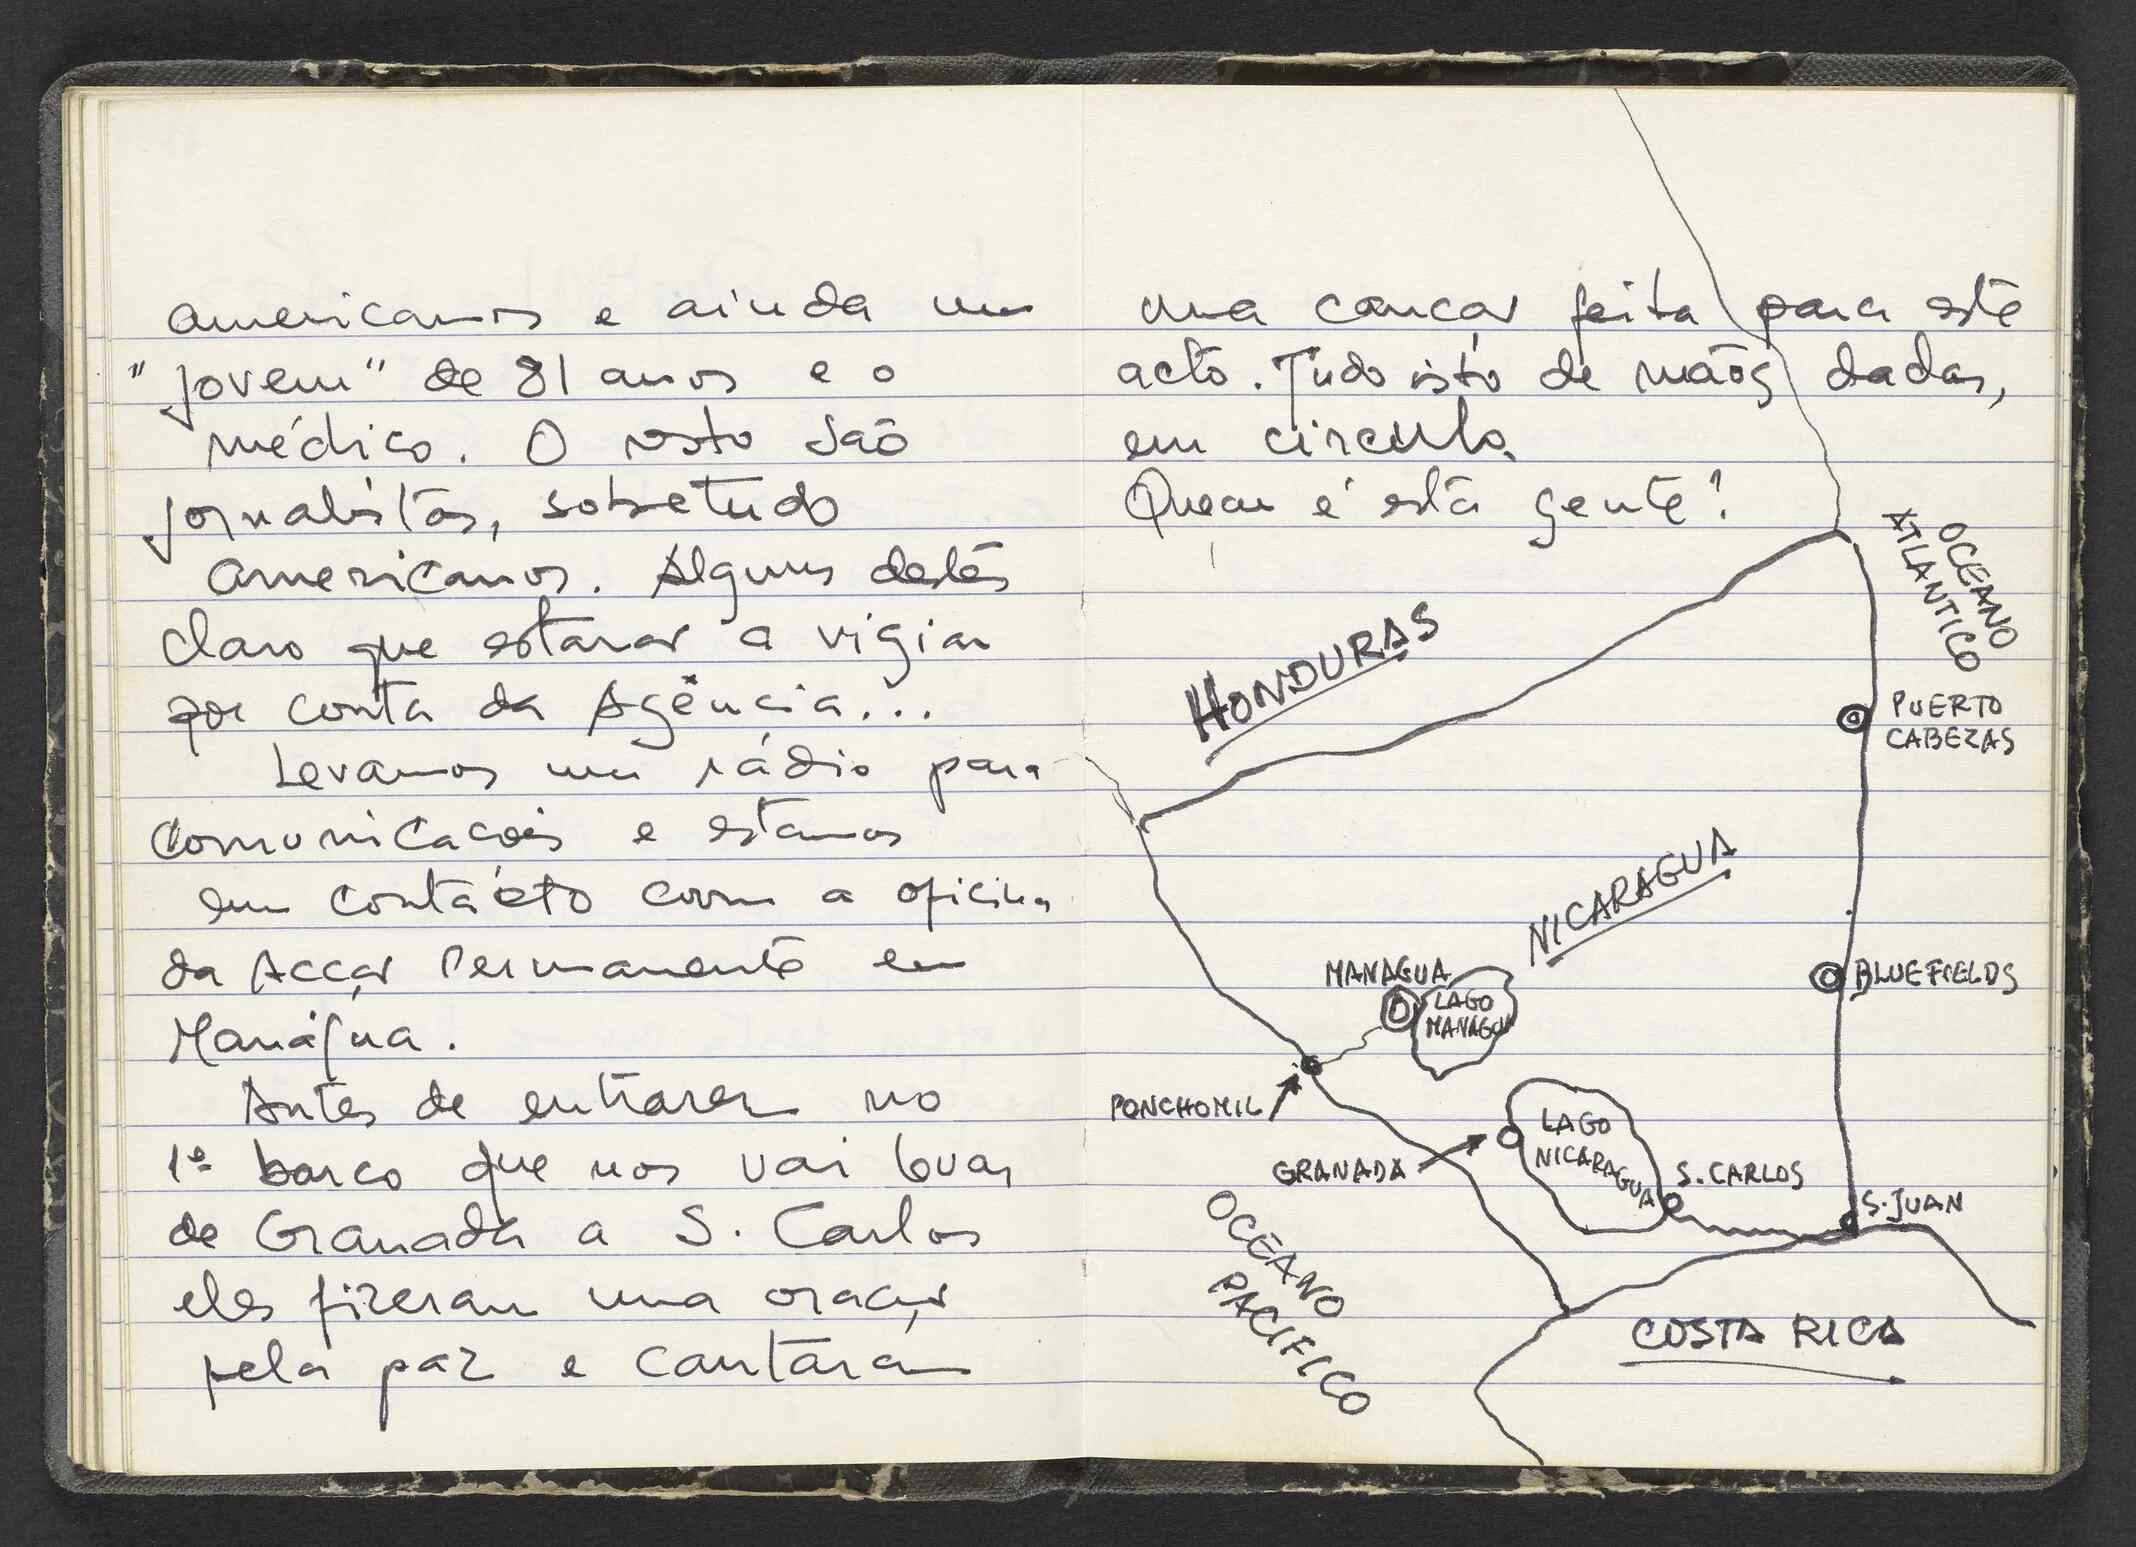 americanos e ainda um
"jovem" de 81 anos e o
médico. O resto são
jornalistas, sobretudo
americanos. Alguns destes
claro que estarão a vigiar
por conta da Agência...
Levamos um rádio para
comunicações e estamos
em contácto com a oficina
da Acção Permanente em
Manágua.
Antes de entrarem no
1º barco que nos vai levar
de Granada a S. Carlos
eles fizeram uma oração
pela paz e cantaram
uma canção feita para este
acto. Tudo isto de mãos dadas,
em circulo.
Quem é esta gente?
OCEANO
ATLANTICO
HONDURAS
PUERTO
CABEZAS
NICARAGUA
MANAGUA
LAGO
MANAGUA
BLUEFIELDS
PONCHOMIL
LAGO
NICARAGUA
GRANADA
S. CARLOS
S. JUAN
OCEANO
PACIFICO
COSTA RICA